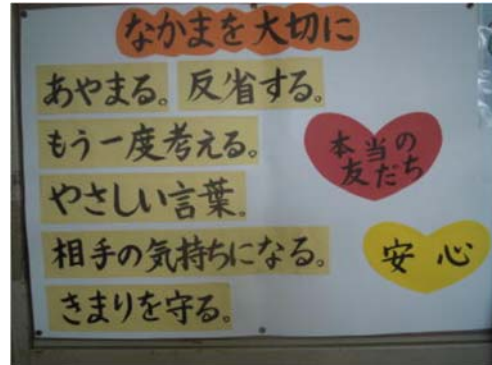 なかまを大切に
あやまる。反省する。
もう一度考える。
やさしい言葉。
相手の気持ちになる。
きまりを守る。
本当の
友だち
安心